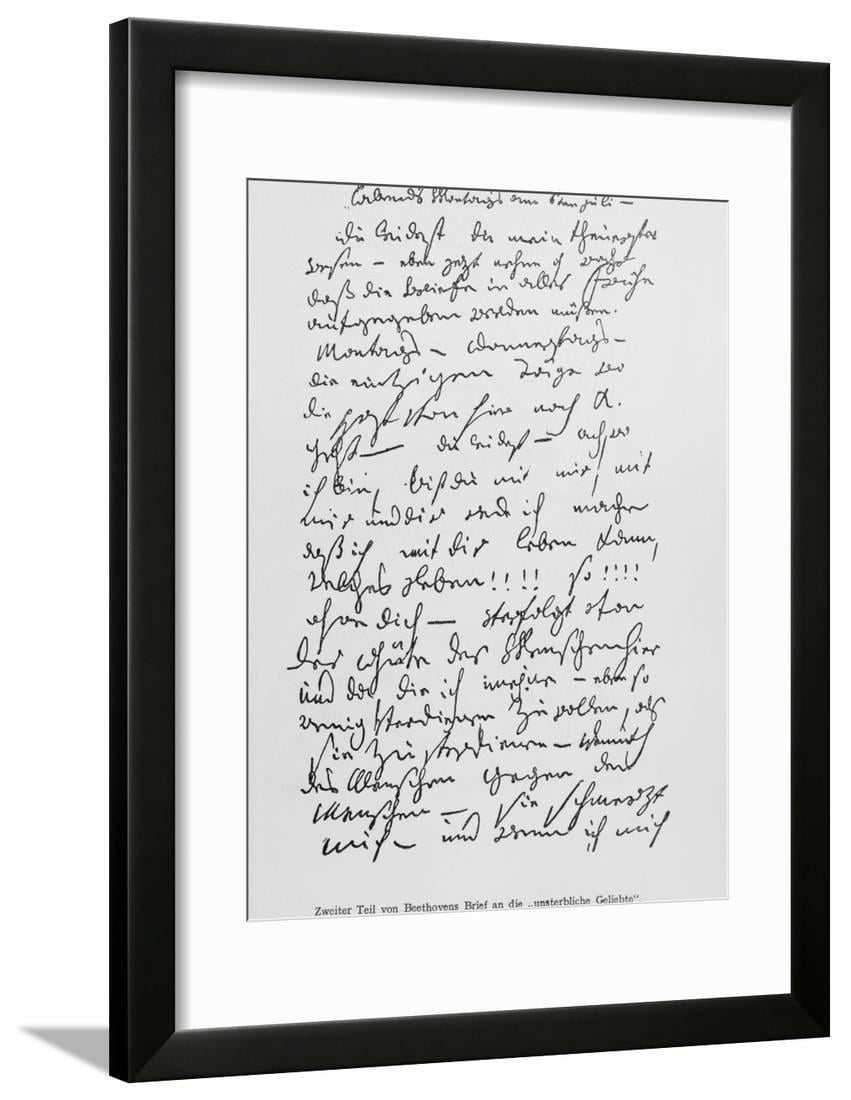 Abends Montags am 6ten juli –
Du leidest du mein theuerstes
Wesen – eben jetzt nehme ich wahr
daß die Briefe in aller Frühe
aufgegeben werden müßen.
Montags – Donnerstags –
die eintzigen Täge wo
die Post von hier nach K.
geht – du leidest – ach, wo
ich bin, bist du mit mir, mit
mir und dir rede ich mache
daß ich mit dir leben kann,
welches Leben!!!! so!!!!
ohne dich – Verfolgt von
der Güte der Menschen hier
und da, die ich meyne – eben so
wenig Verdienen zu wollen, als
sie zu Verdienen – Demuth
des Menschen gegen den
Menschen – sie schmerzt
mich – und wenn ich mich
Zweiter Teil von Beethovens Brief an die „unsterbliche Geliebte".